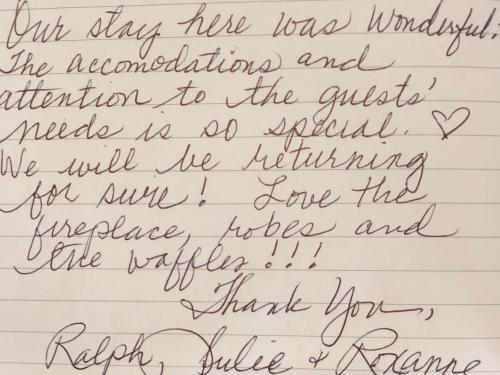 Our stay here was wonderful!
The accomodations and
attention to the guests'
needs is so special. ♡
We will be returning
for sure! Love the
fireplace, robes and
the waffles!!!
Thank You,
Ralph, Julie & Roxanne